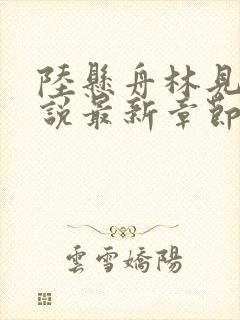 陸懸舟林見
說最新章節
雲雪嬌陽